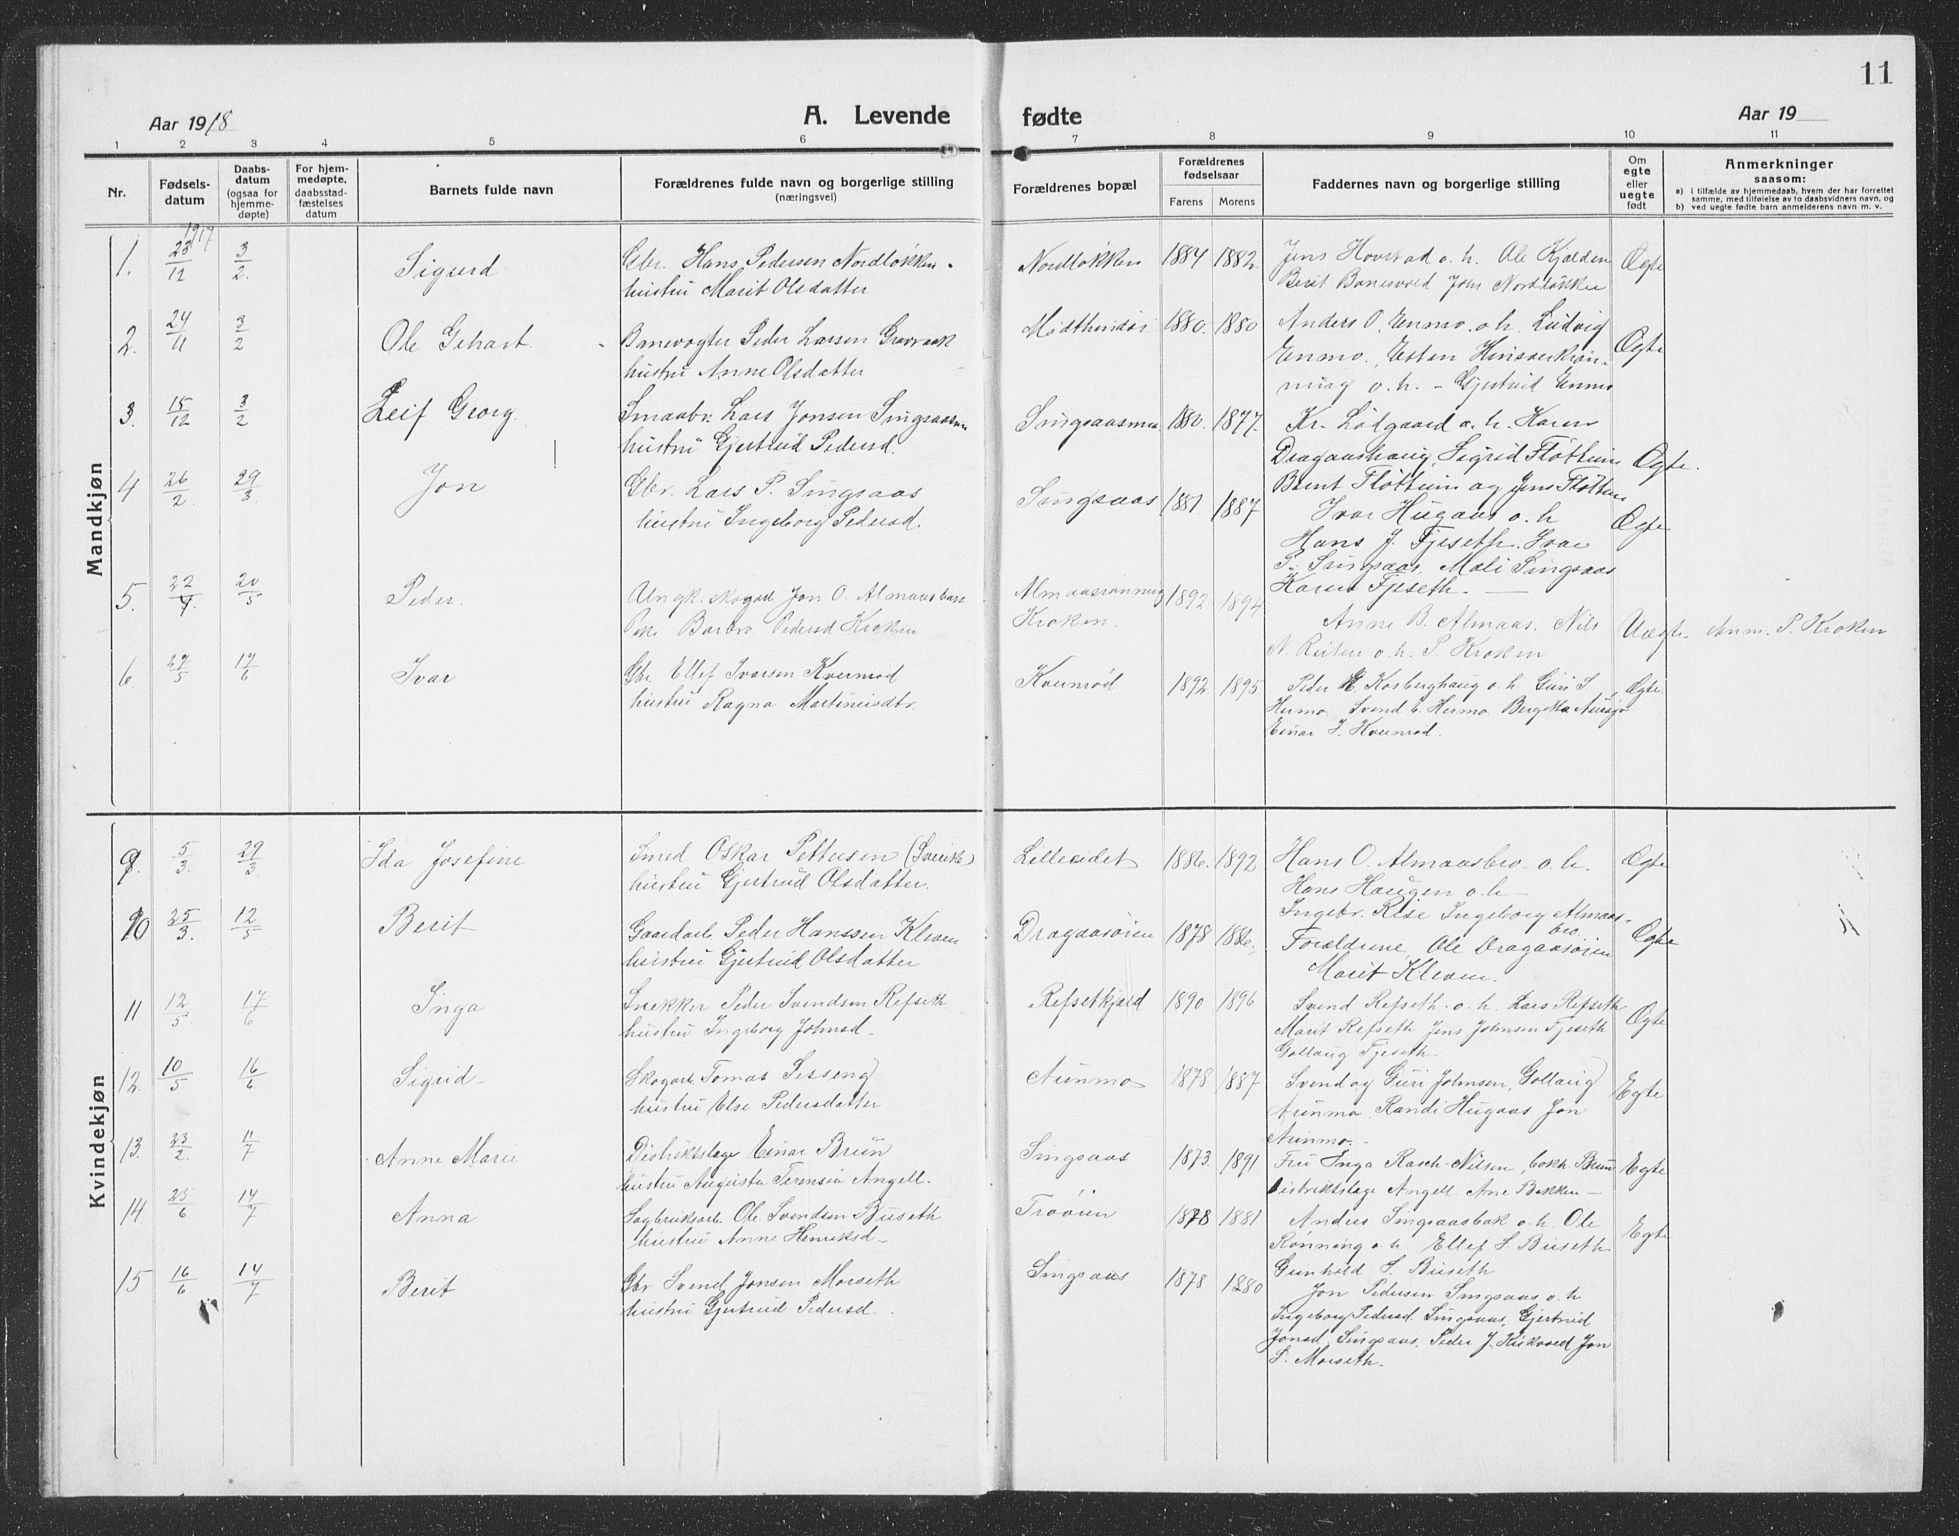 11
Aar 1918
A. Levende
fødte
Aar 19
1 2 3 4 5 6 7 8 9 10 11
Nr.
Fødsels-
datum
Daabs-
datum
(ogsaa for
hjemme-
døpte)
For hjem-
medøpte,
daabsstad-
fæstelses
datum
Barnets fulde navn
Forældrenes fulde navn og borgerlige stilling
(næringsvei)
Forældrenes bopæl
Forældrenes
fødselsaar
Farens Morens
Faddernes navn og borgerlige stilling
Om
egte
eller
uegte
født
Anmerkninger
saasom:
a) i tilfælde av hjemmedaab, hvem der har forrettet
samme, med tilføielse av to daabsvidners navn, og
b) ved uegte fødte barn anmelderens navn m. v.
Mandkjøn
1917
1. 23/12 3/2. Sigurd Gbr. Hans Pedersen Nordløkken Nordløkken 1884 1882. Jens Hovstad o. h. Ole Kjelden Ægte
hustru Marit Olsdatter Berit Bonesvold John Nordløkken
2. 24/11 3/2 Ole Gehart Banevogter Peder Larsen Gravraak 1880. 1880 Anders O. Enmo. o. h. Ludvig Ægte
hustru Anne Olsdatter Enmo, Esten
o. h. - Gjertrud Enmo
3. 15/12 3/2 Leif Georg. Smaabr. Lars Jonsen Singsaasmo Singsaasmoen 1880. 1877. Kr. Lødgaard o. h. Karen
hustru Gjertrud Pedersd. Dragaashaug, Sigrid Fløttum Ægte.
Bernt Fløttum og Jens Fløttum
4 26/2 29/3. Jon Gbr. Lars P. Singsaas Singsaas 1881 1887 Ivar Hugaas o. h Ægte
hustru Ingeborg Pedersd. Hans J. Fjeseth. Ivar
P. Singsaas. Mali Singsaas
Karen Fjeseth. —
5. 22/4. 20/5 Peder. Ungk. skogarb Jon O. Almaasbro Almaasrønning 1892 1894
Pike Barbro Pedersd Kroken Kroken. Anne B. Almaas. Nils Uægte. Anm. P. Kroken
N. Reiten o. h. P. Kroken
6 27/5 17/6 Ivar Gbr Ellef Ivarsen Kvernrød Kvernrød 1892. 1895 Peder E. Kosberghaug o. h Guri S. Ægte.
hustru Ragna Martinusdtr. Hermo Svend E. Hermo
Einar I. Kvernrød.
Kvindekjøn
9. 5/3. 29/3 Ida Josefine Smed Oskar Pettersen (Sverik) Lilleeidet 1886. 1892 Hans O. Almaasbro o. h. Ægte
hustru Gjertrud Olsdatter. Hans Haugen o. h —
Ingebr. Rise Ingeborg Almaas-
bro.
10 25/3. 12/5 Berit Gaardarb Peder Hanssen Kleven Dragaasøien 1878 1886. Forældrene, Ole Dragaasøien Ægte
hustru Gjertrud Olsdatter Marit Kleven.
11 12/5 17/6 Inga Snekker Peder Svendsen Refseth Refsethjard 1890 1896 Svend Refseth o. h. Lars Refseth Ægte
hustru Ingeborg Johnsd Marit Refseth Jens Johnsen Fjeseth
Gollaug Fjeseth.
12. 10/5 16/6 Sigrid Skogarb. Tomas Sesseng Aunmo 1878 1887 Svend og Guri Johnsen, Gollaug Egte
hustru Else Pedersdatter Aunmo, Randi Hugaas Jon
Aunmo.
13. 23/2. 11/7 Anne Marie Distriktslæge Einar Bruun Singsaas 1873. 1891 Fru Inga Rasch-Nilsen, Bruun Egte
hustru Augusta Angell. Distriktslæge Angell. Ane Bakken —
14. 25/6 14/7 Anna Sagbruksarb. Ole Svendsen Buseth Trøøien 1878 1881 Anders Singsaasbak o. h. Ole Egte
hustru Anne Henriksd Rønning o. h. Ellef S. Buseth
Gunhild S. Buseth
15 16/6 14/7 Berit Gbr Svend Jonsen Morseth Singsaas 1878 1880 Jon Pedersen Singsaas o. h
hustru Gjertrud Pedersd. Ingeborg Pedersd. Singsaas, Gjertrud
Jonsd. Singsaas. Peder J. Kirkvold Jon
S. Morseth.